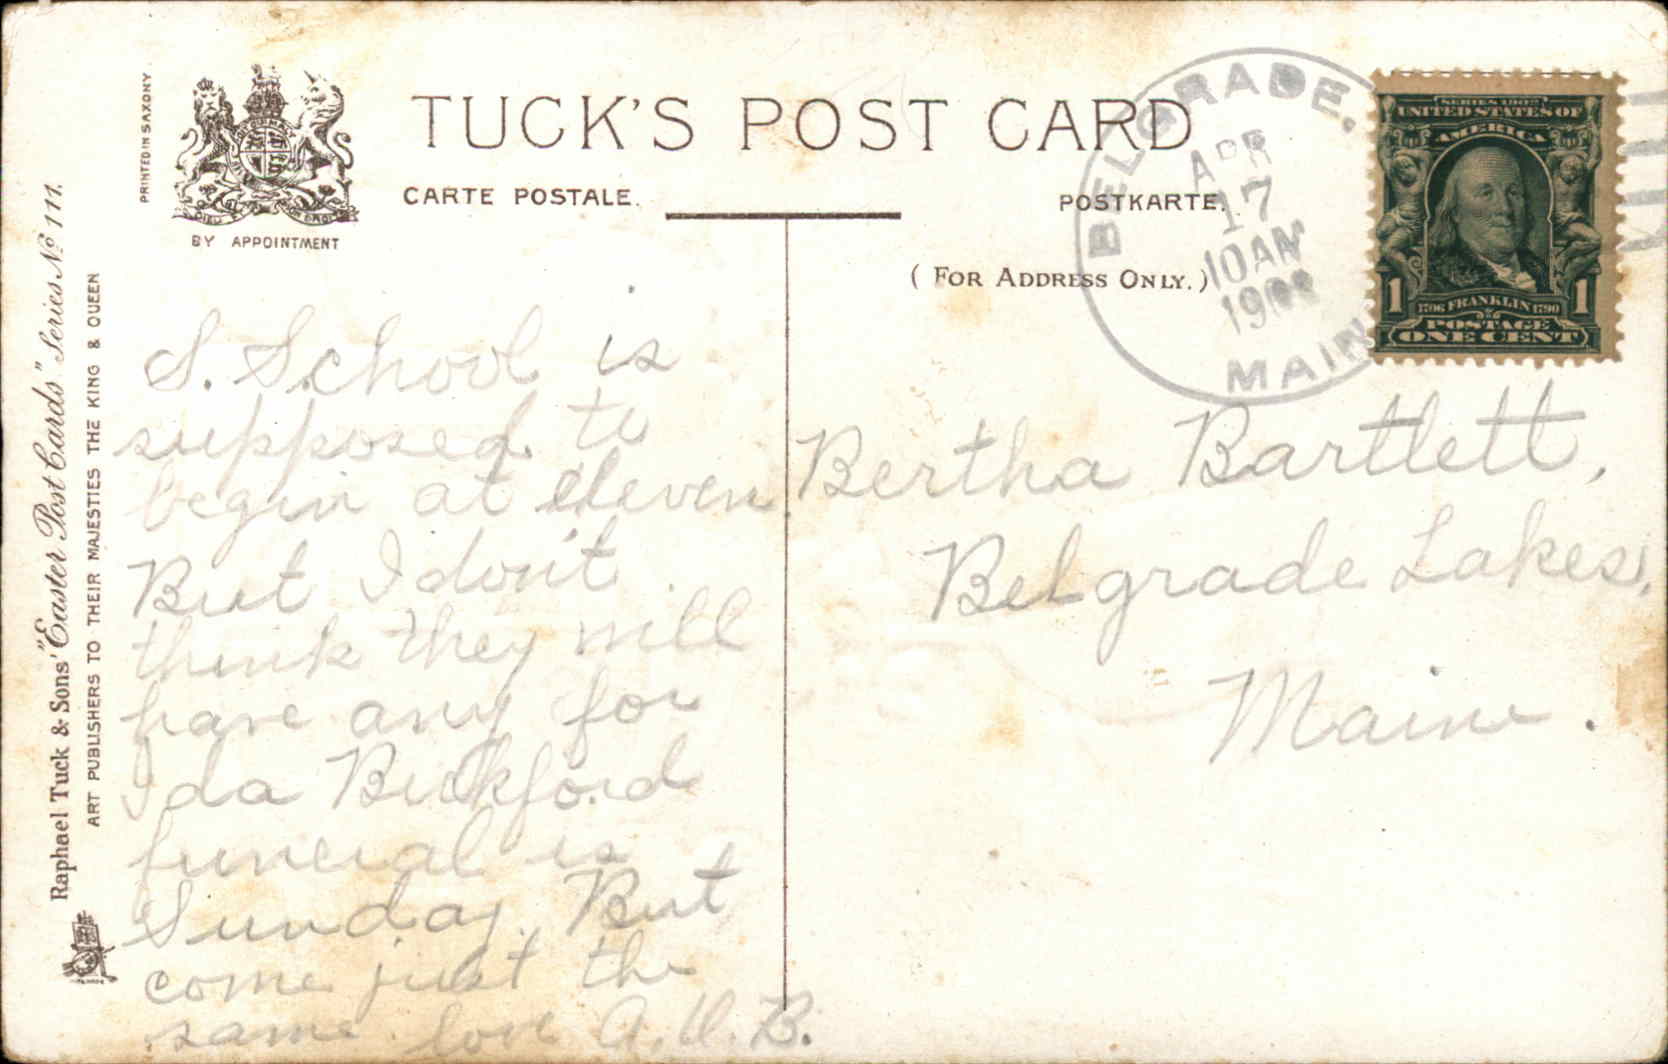 PRINTED IN SAXONY
BY APPOINTMENT
TUCK'S POST CARD
CARTE POSTALE.
POSTKARTE.
( FOR ADDRESS ONLY. )
BELGRADE.
APR
17
10 AM
MAINE
SERIES 1902
UNITED STATES OF
AMERICA
1 1706 FRANKLIN 1790 1
POSTAGE
ONE CENT
Raphael Tuck & Sons' "Easter Post Cards" Series No 111.
ART PUBLISHERS TO THEIR MAJESTIES THE KING & QUEEN
S. School is
supposed to
begin at eleven
But I don't
think they will
have any for
Ida Bickford
funeral is
Sunday. But
come just the
same. love A.V.B.
Bertha Bartlett,
Belgrade Lakes,
Maine.